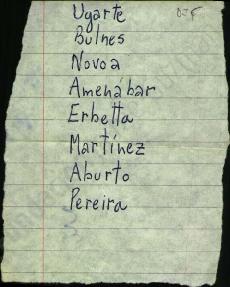 Ugarte
Bulnes
Novoa
Amenábar
Erbetta
Martínez
Aburto
Pereira